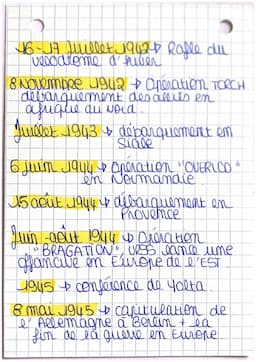 16-17 Juillet 1942 → Rafle du
vélodrome d'hiver
8 Novembre 1942 → Opération TORCH
débarquement des alliés en
afrique du Nord.
Juillet 1943 → débarquement en
Sicile
6 juin 1944 → Opération "OVERLOD"
en Normandie
15 août 1944 → débarquement en
Provence
Juin-août 1944 → Opération
"BRAGATION", URSS lance une
offensive en Europe de l'EST
1945 → conférence de Yalta.
8 mai 1945 → capitulation de
l'Allemagne à Berlin + la
fin de la guerre en Europe